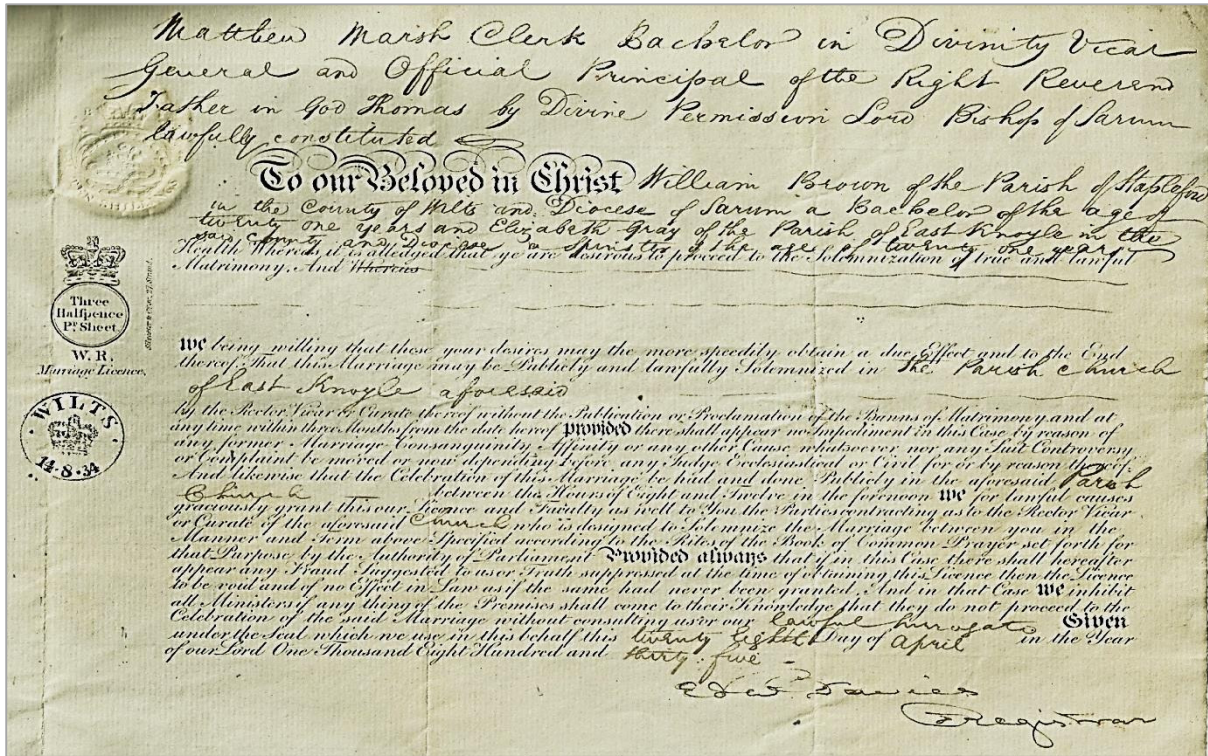 Matthew Marsh Clerk Bachelor in Divinity Vicar
General and Official Principal of the Right Reverend
Father in God Thomas by Divine Permission Lord Bishop of Sarum
lawfully constituted
To our Beloved in Christ William Brown of the Parish of Stapleford
in the County of Wilts and Diocese of Sarum a Bachelor of the age of
twenty one years and Elizabeth Gray of the Parish of East Knoyle in the
said County and Diocese a Spinster of the age of twenty one years
Health Whereas it is alledged that ye are desirous to proceed to the Solemnization of true and lawful
Matrimony, And Whereas
Three
Halfpence
Pr. Sheet.
W. R.
Marriage Licence.
we being willing that these your desires may the more speedily obtain a due Effect and to the End
thereof That this Marriage may be Publicly and lawfully Solemnized in the Parish Church
of East Knoyle aforesaid
WILTS
14·8·34
by the Rector Vicar or Curate thereof without the Publication or Proclamation of the Banns of Matrimony and at
any time within three Months from the date hereof provided there shall appear no Impediment in this Case by reason of
any former Marriage Consanguinity Affinity or any other Cause whatsoever nor any Suit Controversy
or Complaint be moved or now depending before any Judge Ecclesiastical or Civil for or by reason thereof
And likewise that the Celebration of this Marriage be had and done Publicly in the aforesaid Parish
Church between the Hours of Eight and Twelve in the forenoon we for lawful causes
graciously grant this our Licence and Faculty as well to You the Parties contracting as to the Rector Vicar
or Curate of the aforesaid Church who is designed to Solemnize the Marriage between you in the
Manner and Form above Specified according to the Rites of the Book of Common Prayer set forth for
that Purpose by the Authority of Parliament Provided always that if in this Case there shall hereafter
appear any Fraud Suggested to us or Truth suppressed at the time of obtaining this Licence then the Licence
to be void and of no Effect in Law as if the same had never been granted And in that Case we inhibit
all Ministers if any thing of the Premises shall come to their Knowledge that they do not proceed to the
Celebration of the said Marriage without consulting us or our lawful Surrogate Given
under the Seal which we use in this behalf this twenty eighth Day of April in the Year
of our Lord One Thousand Eight Hundred and thirty five
Edwd. Davies
Registrar